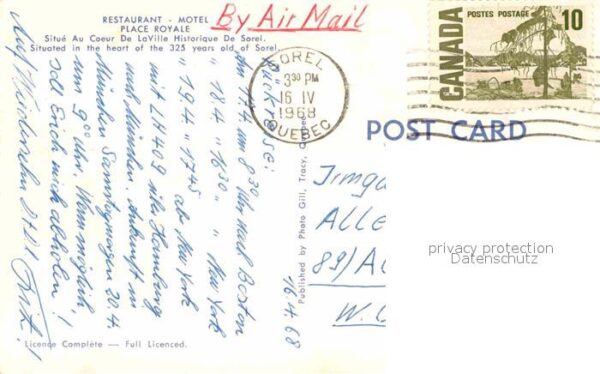 RESTAURANT - MOTEL
PLACE ROYALE
Situé Au Coeur De LaVille Historique De Sorel.
Situated in the heart of the 325 years old of Sorel.
By Air Mail
SOREL
3 30 PM
16 IV
1968
QUEBEC
CANADA
POSTES POSTAGE
10
POST CARD
Rückreise:
Am 17.4. um 8 30 Uhr nach Boston
" 18.4. " 16 30 " " New York
" 19.4. " 17 45 ab New York
mit LH 409 via Hamburg
nach München. Ankunft in
München Samstagmorgen 20.4.
um 9 00 Uhr. Wenn möglich,
soll Erich mich abholen!
Auf Wiedersehn Fritz!
16.4.68
Published by Photo Gill, Tracy,
Irmga
ALLE
89)
W.
privacy protection
Datenschutz
Licence Complète — Full Licenced.